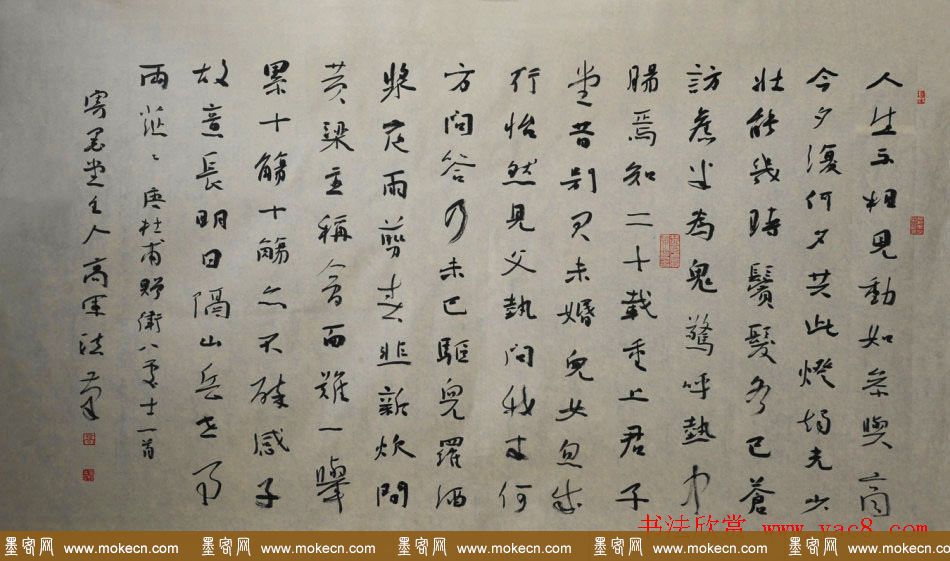 人生不相見動如參與商
今夕復何夕共此燈燭光少
壯能幾時鬢髮各已蒼
訪舊半為鬼驚呼熱中
腸焉知二十載重上君子
堂昔別君未婚兒女忽成
行怡然見父執問我來何
方問答乃未已驅兒羅酒
漿夜雨剪春韭新炊間
黃粱主稱會面難一舉
累十觴十觴亦不醉感子
故意長明日隔山岳世事
兩茫々唐杜甫贈衛八處士一首
寄墨堂主人高軍法
书法欣赏 www.yac8.com
墨客网 www.mokecn.com 墨客网 www.mokecn.com 墨客网 www.mokecn.com 墨客网 www.mokecn.com 墨客网 www.mokecn.com